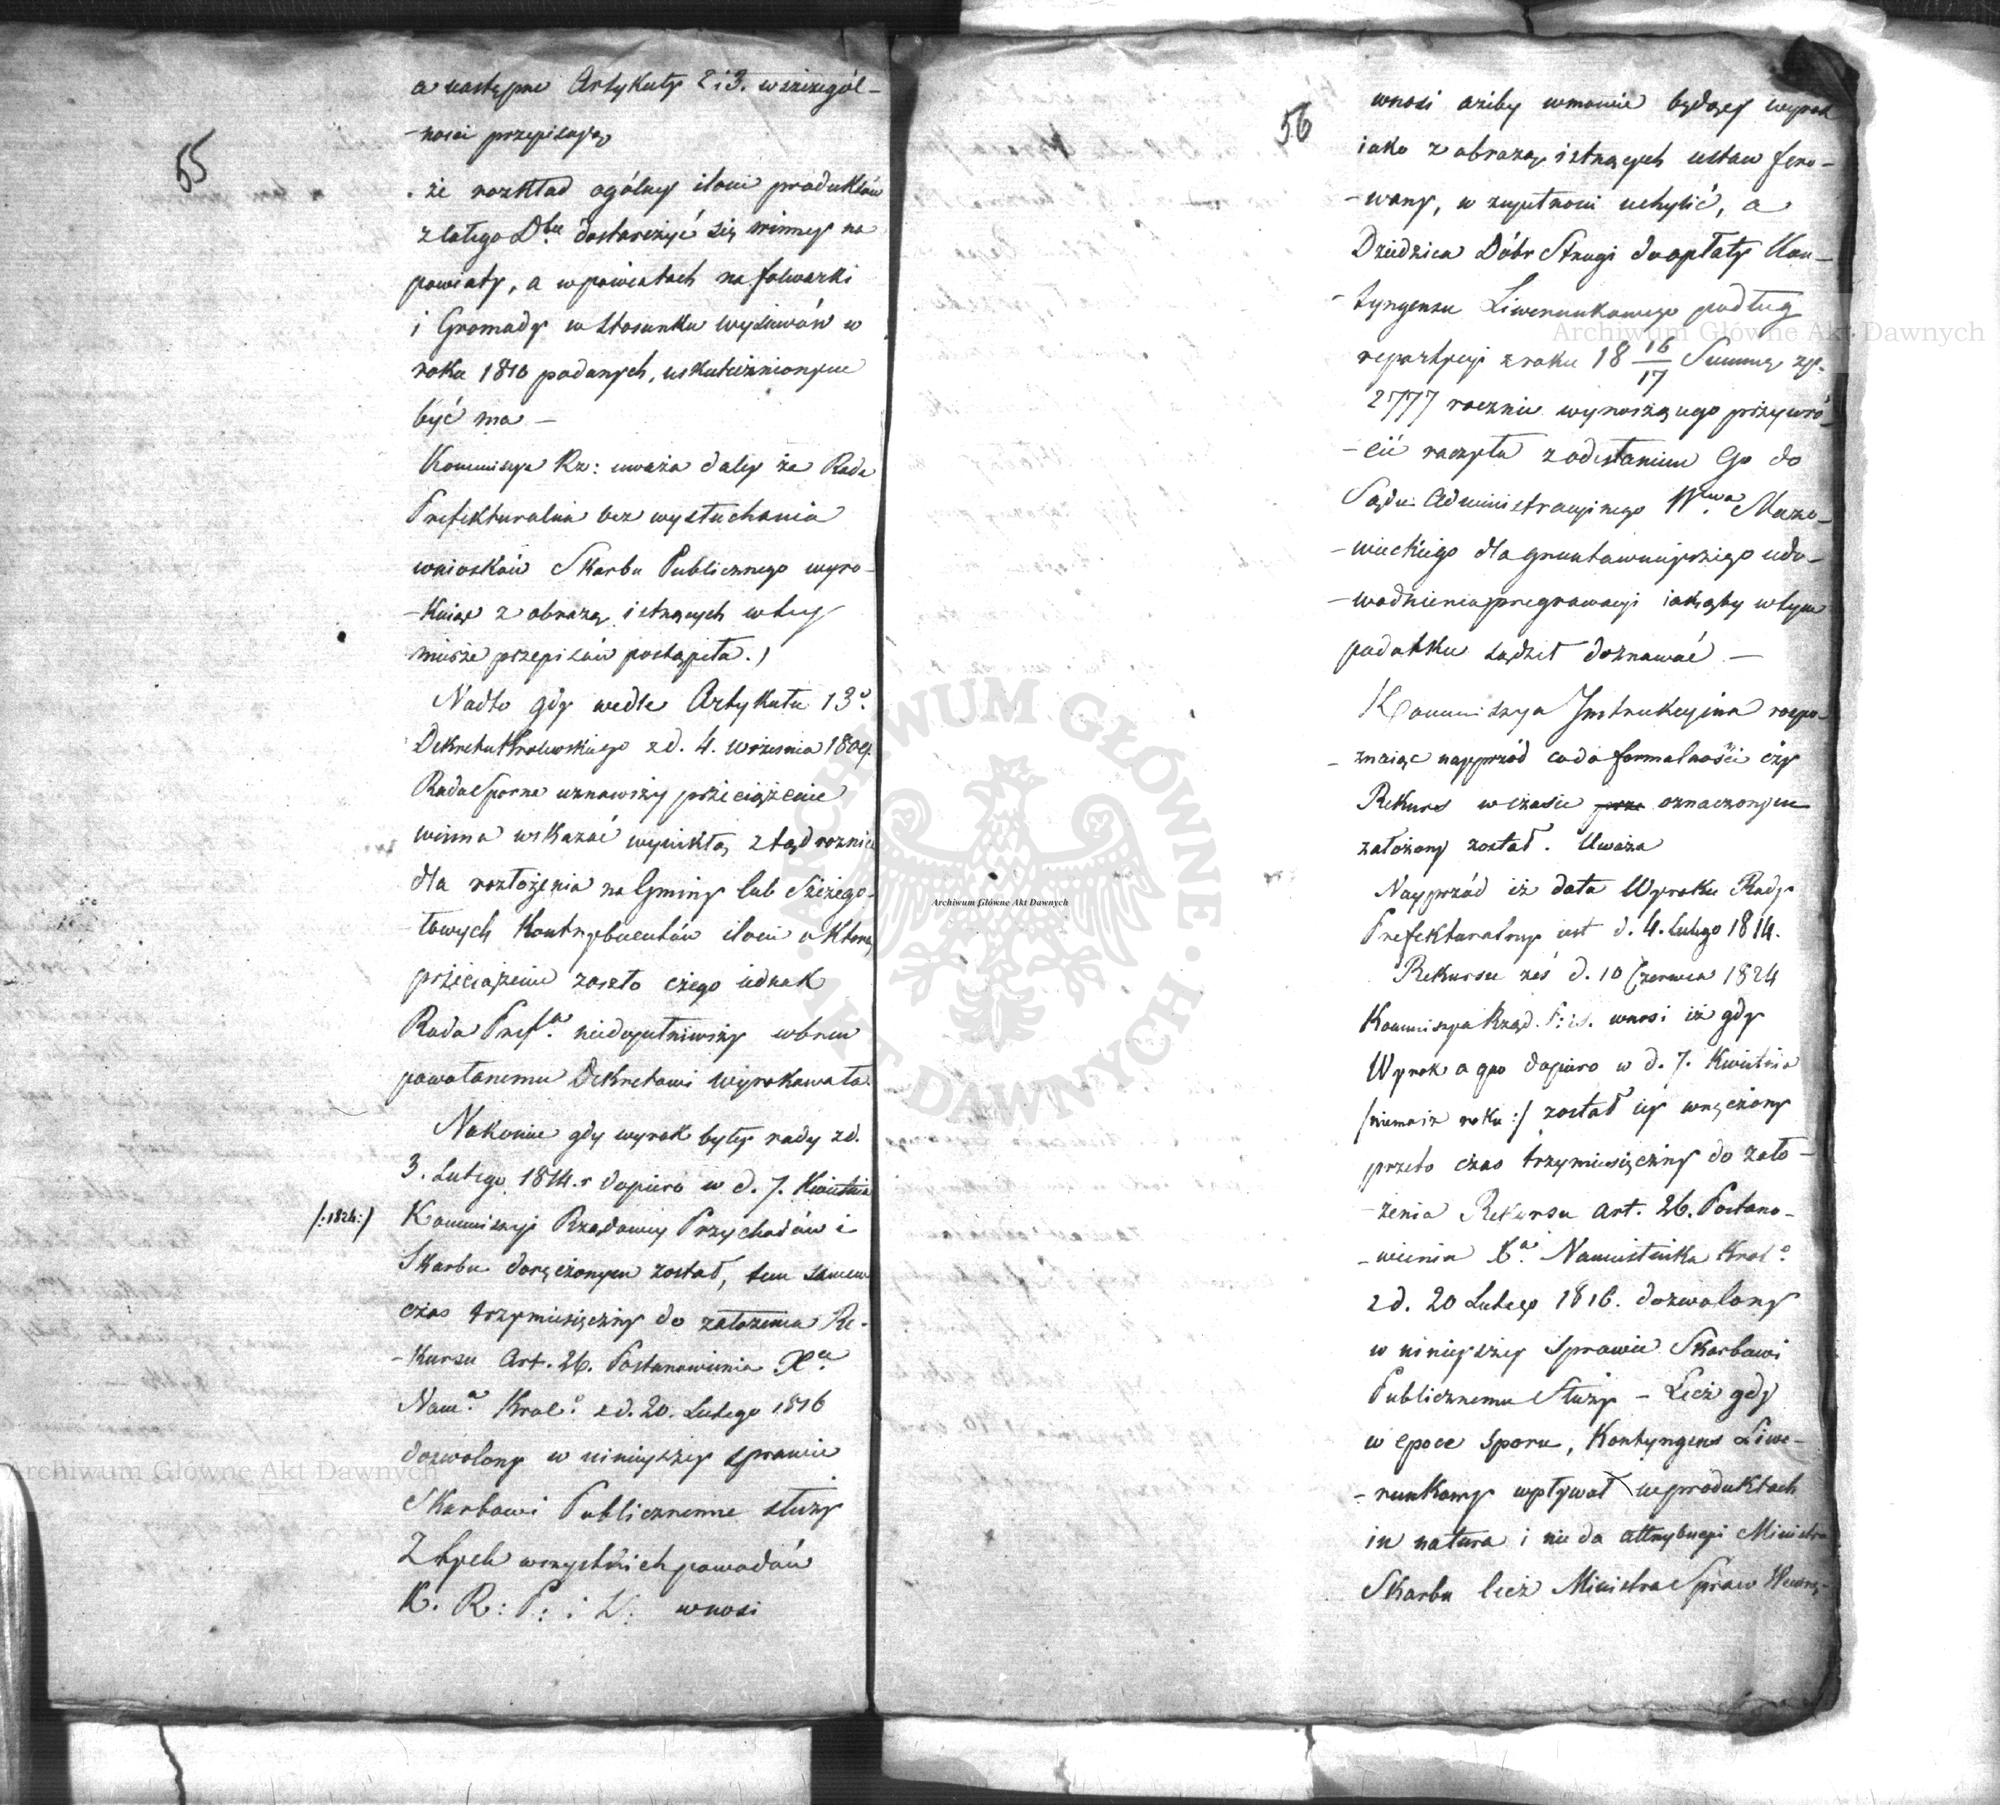 55
a następne Artykuły 2 i 3. w szczegól-
-ności przepisują,
że rozkład ogólney ilości produktów
z całego Dbu dostarczyć się winney na
powiaty, a w powiatach na folwarki
i Gromady w stosunku wysiewów w
roku 1810 podanych, uskutecznionym
być ma –
Kommissya Rz: uważa daley że Rada
Prefekturalna bez wysłuchania
wniosków Skarbu Publicznego wyro-
-kuiąc z obrazą istnących w tey
mierze przepisów postąpiła.)
Nadto gdy wedle Artykułu 13o.
Dekretu Królewskiego z d. 4. Września 1809.
Rada Sporne uznawszy przeciążenie
winna wskazać wynikłą ztąd roznicę
dla rozłożenia na Gminy lub Szczegó-
-łowych Kontrybuentów ilości o którą
przeciążenie zaszło czego iednak
Rada Prefa. niedopełniwszy wbrew
powołanemu Dekretowi wyrokowała.
Nakoniec gdy wyrok byłey rady z d.
3. Lutego 1814. r dopiero w d. 7. Kwietnia
/:1824:/
Kommissyi Rządowey Przychodów i
Skarbu doręczonym został, tem samem
czas trzymiesięczny do założenia Re-
-kursu Art. 26. Postanowienia Xa.
Nama. Krolo. z d. 20. Lutego 1816
dozwolony w ninieyszey sprawie
Skarbowi Publicznemu służy
Z tych wszystkich powodów
K. R: P: i S: wnosi
56
wnosi ażeby w mowie będący wyrok
iako z obrazą istnących ustaw fero-
-wany, w zupełności uchylić, a
Dziedzica Dóbr Strugi do opłaty Kon-
-tyngensu Liwerunkowego podług
repartycyi z roku 18 16/17 Summę zp.
2777 rocznie wynoszącego przywró-
-cić raczyła z odesłaniem Go do
Sądu Administracyinego Wwa. Mazo-
-wieckiego dla gruntownieyszego udo-
-wodnienia pregrawacyi iakąby w tym
podatku sądził doznawać –
Kommissya Instrukcyina rozpo-
-znaiąc nayprzód co do formalności czy
Rekurs w czasie oznaczonym
założony został. Uważa
Nayprzód iż data Wyroku Rady
Prefekturalney iest d. 4. Lutego 1814.
Rekursu zaś d. 10 Czerwca 1824
Kommissya Rząd. P: i S. wnosi iż gdy
Wyrok ago dopiero w d. 7. Kwietnia
/niemasz roku:/ został iey wręczony
przeto czas trzymiesięczny do zało-
-żenia Rekursu art. 26. Postano-
-wienia Xa. Namiestnika Krolo.
z d. 20 Lutego 1816. dozwolony
w ninieyszey Sprawie Skarbowi
Publicznemu Służy – Lecz gdy
w epoce sporu, Kontyngens Liwe-
-runkowy wpływał w produktach
in natura i nie do attrybucyi Ministra
Skarbu lecz Ministra Spraw Wewnę-
Archiwum Główne Akt Dawnych
Archiwum Główne Akt Dawnych
Archiwum Główne Akt Dawnych
ARCHIWUM GŁÓWNE AKT DAWNYCH